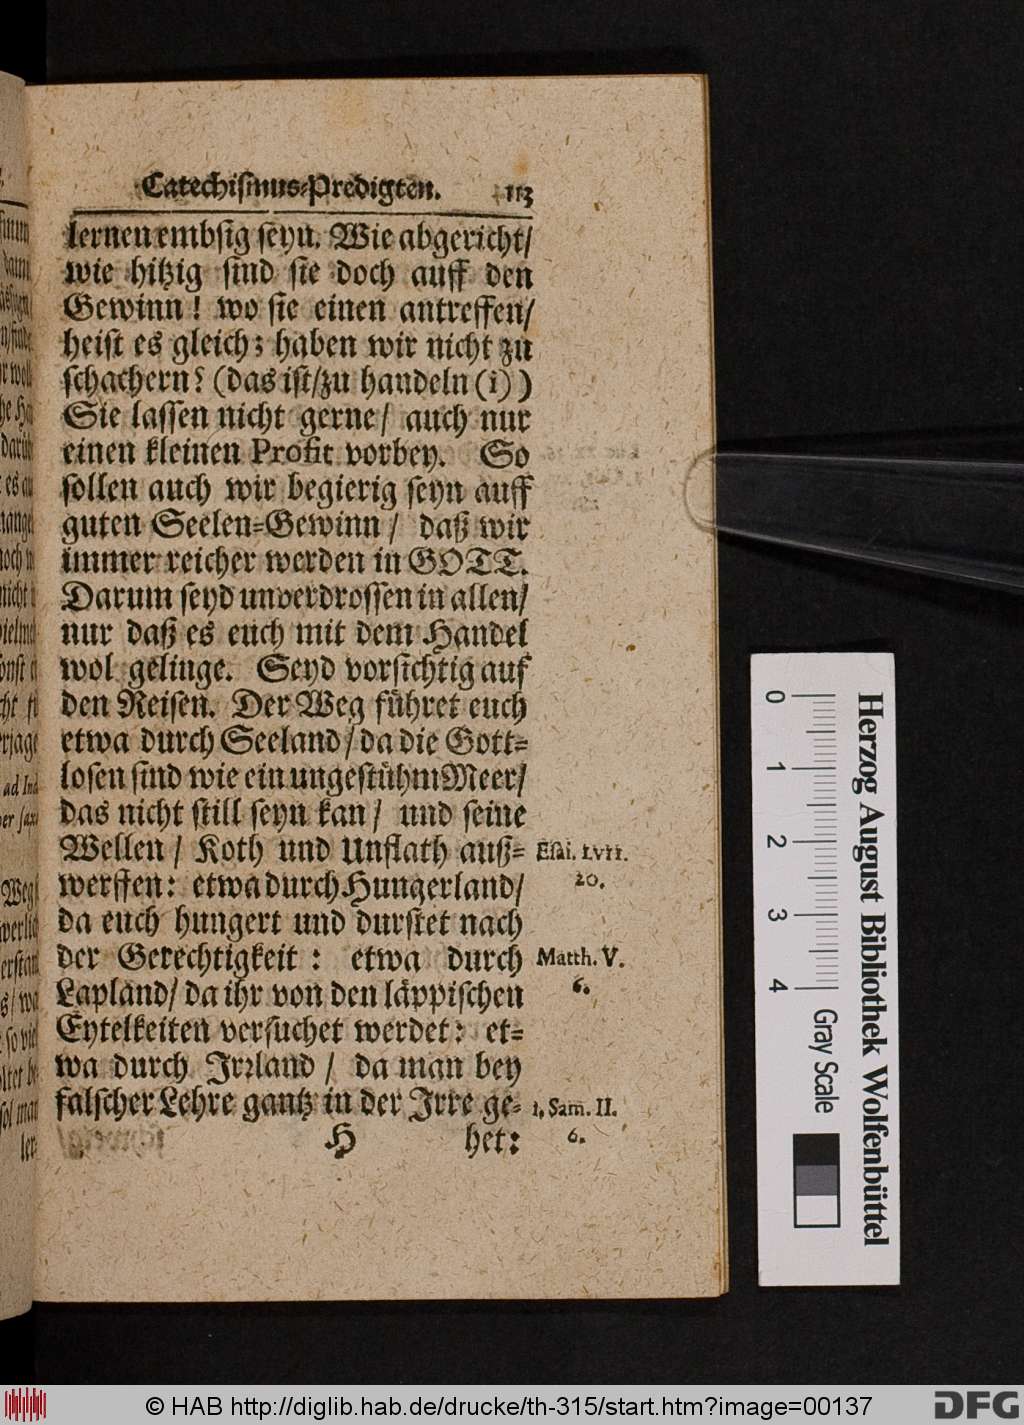 Catechismus-Predigten. 113
lernen embsig seyn. Wie abgericht/
wie hitzig sind sie doch auff den
Gewinn! wo sie einen antreffen/
heist es gleich; haben wir nicht zu
schachern? (das ist/zu handeln (i))
Sie lassen nicht gerne/ auch nur
einen kleinen Profit vorbey. So
sollen auch wir begierig seyn auff
guten Seelen-Gewinn/ daß wir
immer reicher werden in GOTT.
Darum seyd unverdrossen in allen/
nur daß es euch mit dem Handel
wol gelinge. Seyd vorsichtig auf
den Reisen. Der Weg führet euch
etwa durch Seeland/ da die Gott-
losen sind wie ein ungestühm Meer/
das nicht still seyn kan/ und seine
Wellen/ Koth und Unflath auß-
werffen: etwa durch Hungerland/
da euch hungert und durstet nach
der Gerechtigkeit: etwa durch
Lapland/ da ihr von den läppischen
Eytelkeiten versuchet werdet: et-
wa durch Irrland/ da man bey
falscher Lehre gantz in der Irre ge-
H het:
Esai. LVII.
20.
Matth. V.
6.
1. Sam. II.
6.
Herzog August Bibliothek Wolfenbüttel
0 1 2 3 4 Gray Scale
© HAB http://diglib.hab.de/drucke/th-315/start.htm?image=00137
DFG